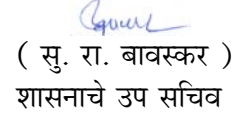 ( सु. रा. बावस्कर )
शासनाचे उप सचिव